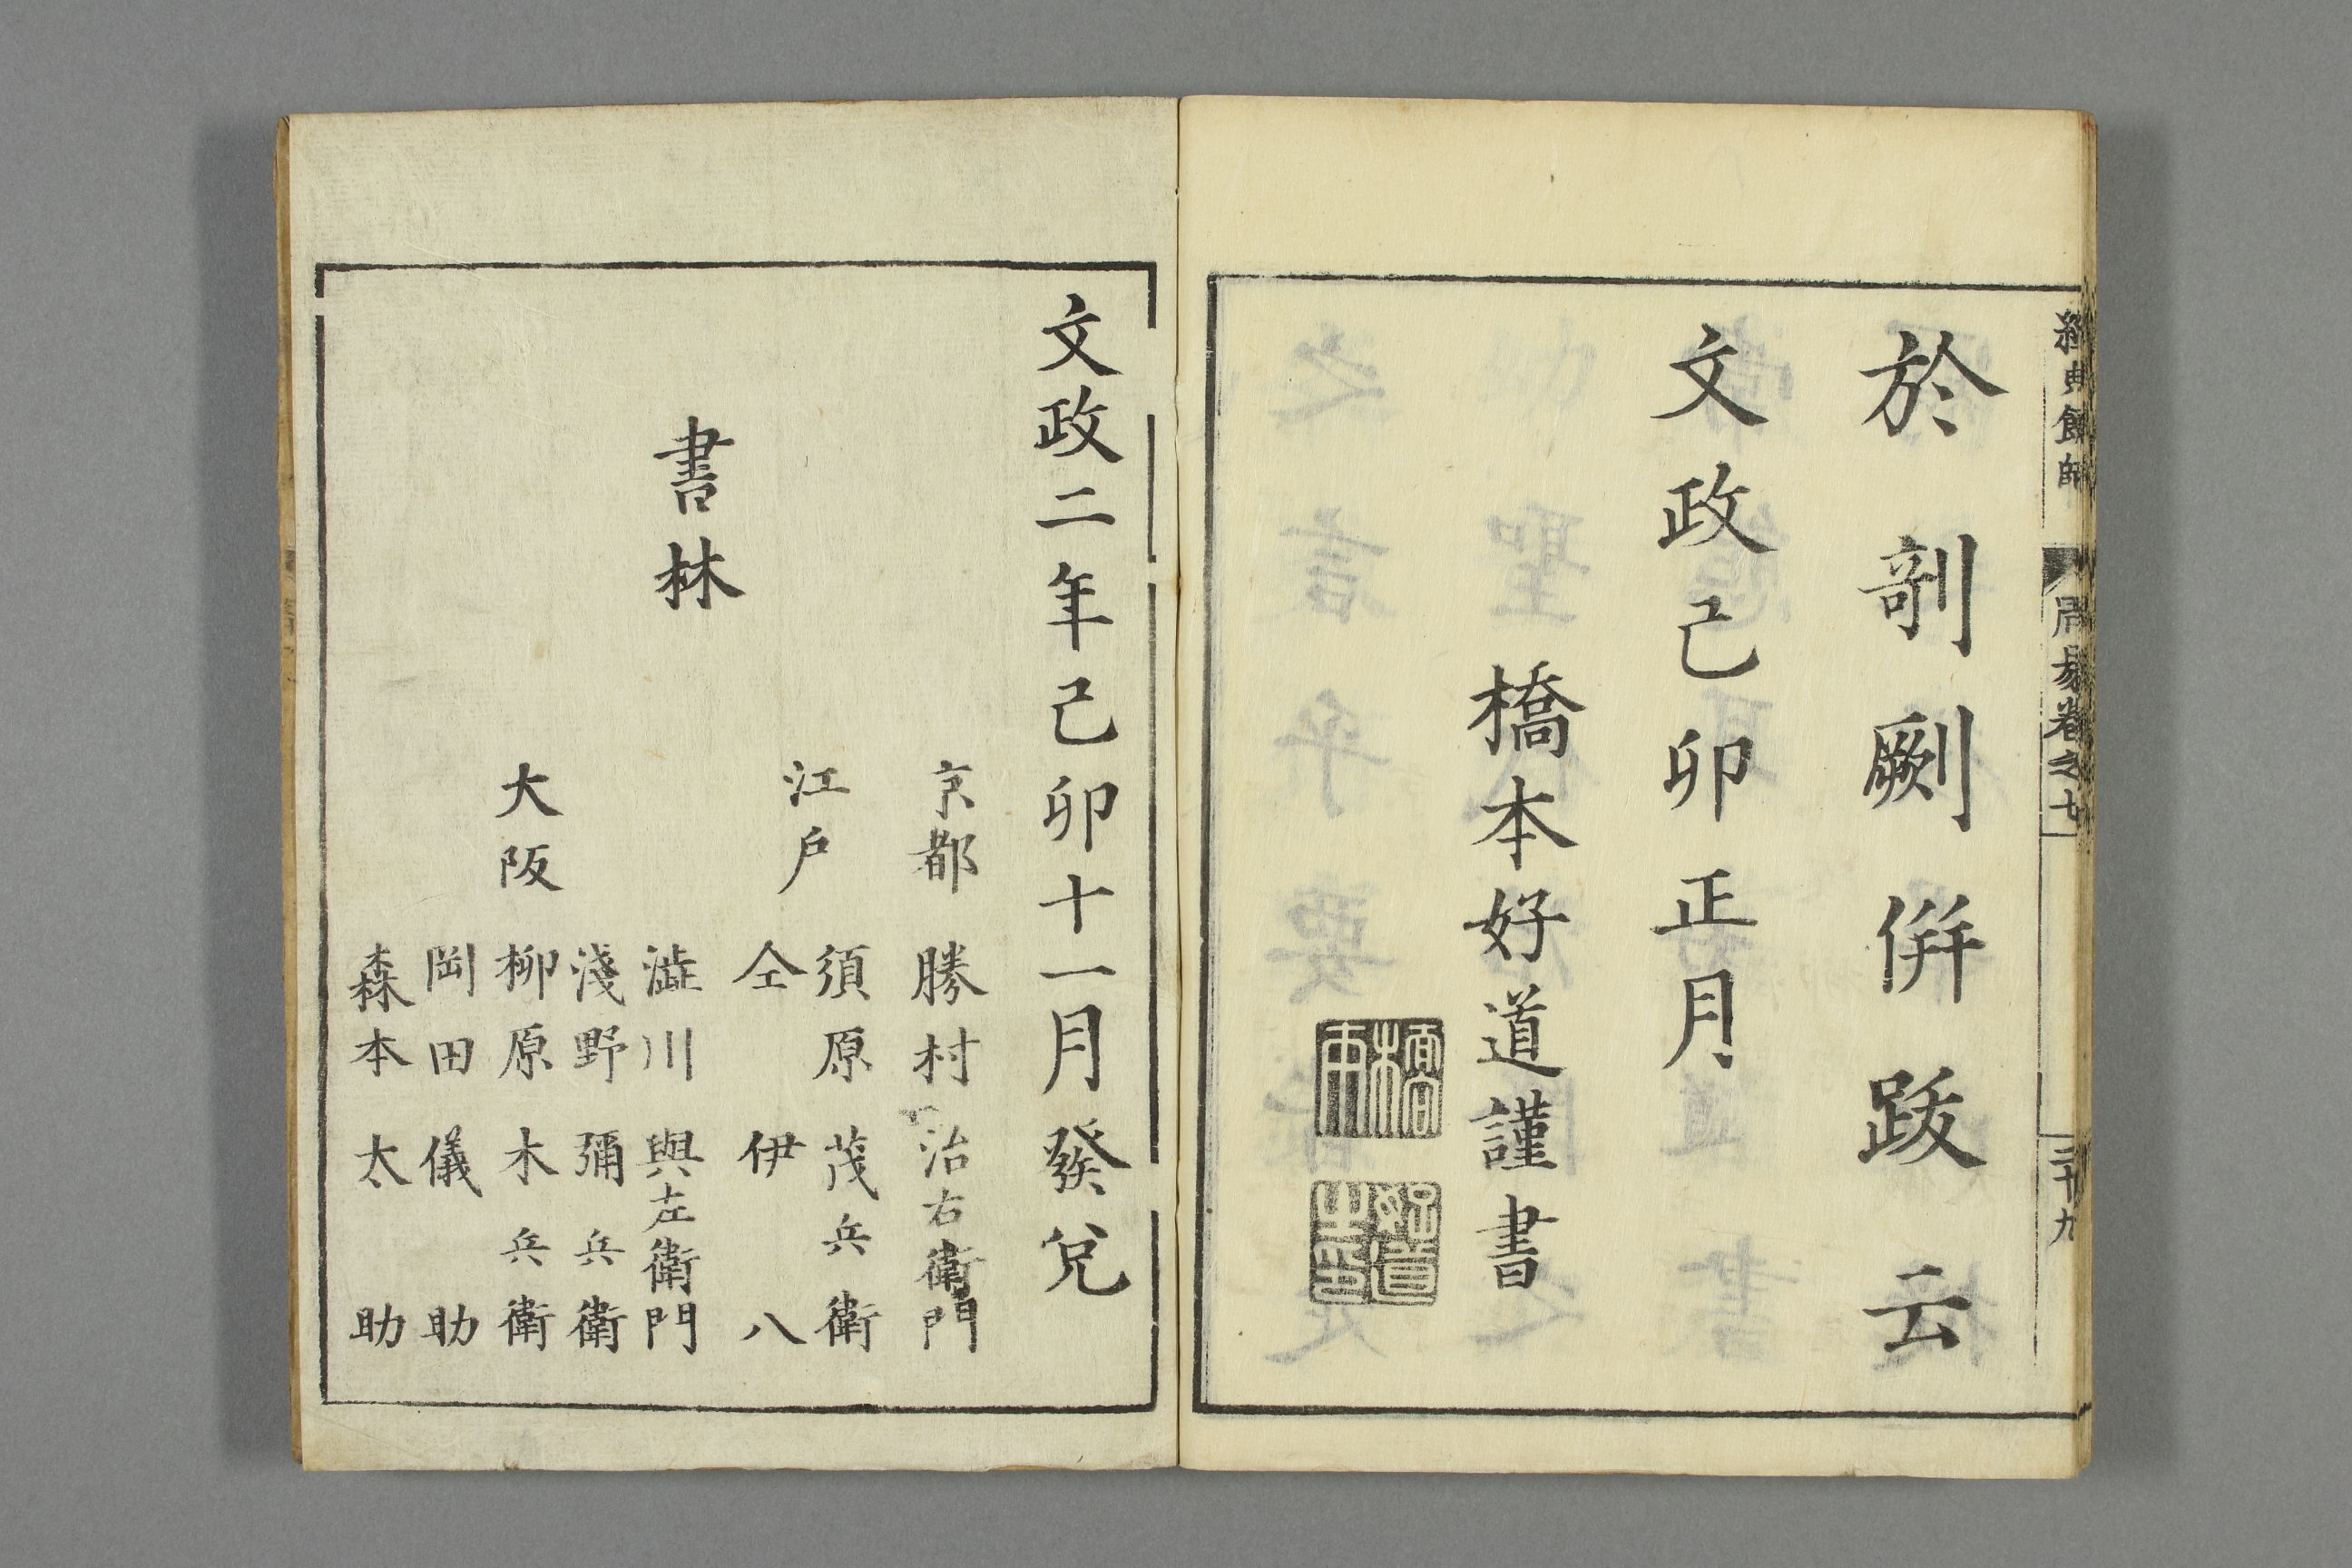 經典餘師
周易卷之七
三十九
於剞劂併跋云
文政己卯正月
橋本好道謹書
橋本
文政二年己卯十一月發兌
書林
京都
勝村治右衛門
江戶
須原茂兵衛
仝伊八
大阪
澁川與左衛門
淺野彌兵衛
柳原木兵衛
岡田儀助
森本太助